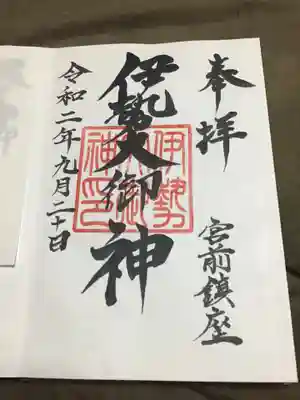 奉拝
宮前鎮座
伊勢大御神
伊勢大御神印
令和二年九月二十日